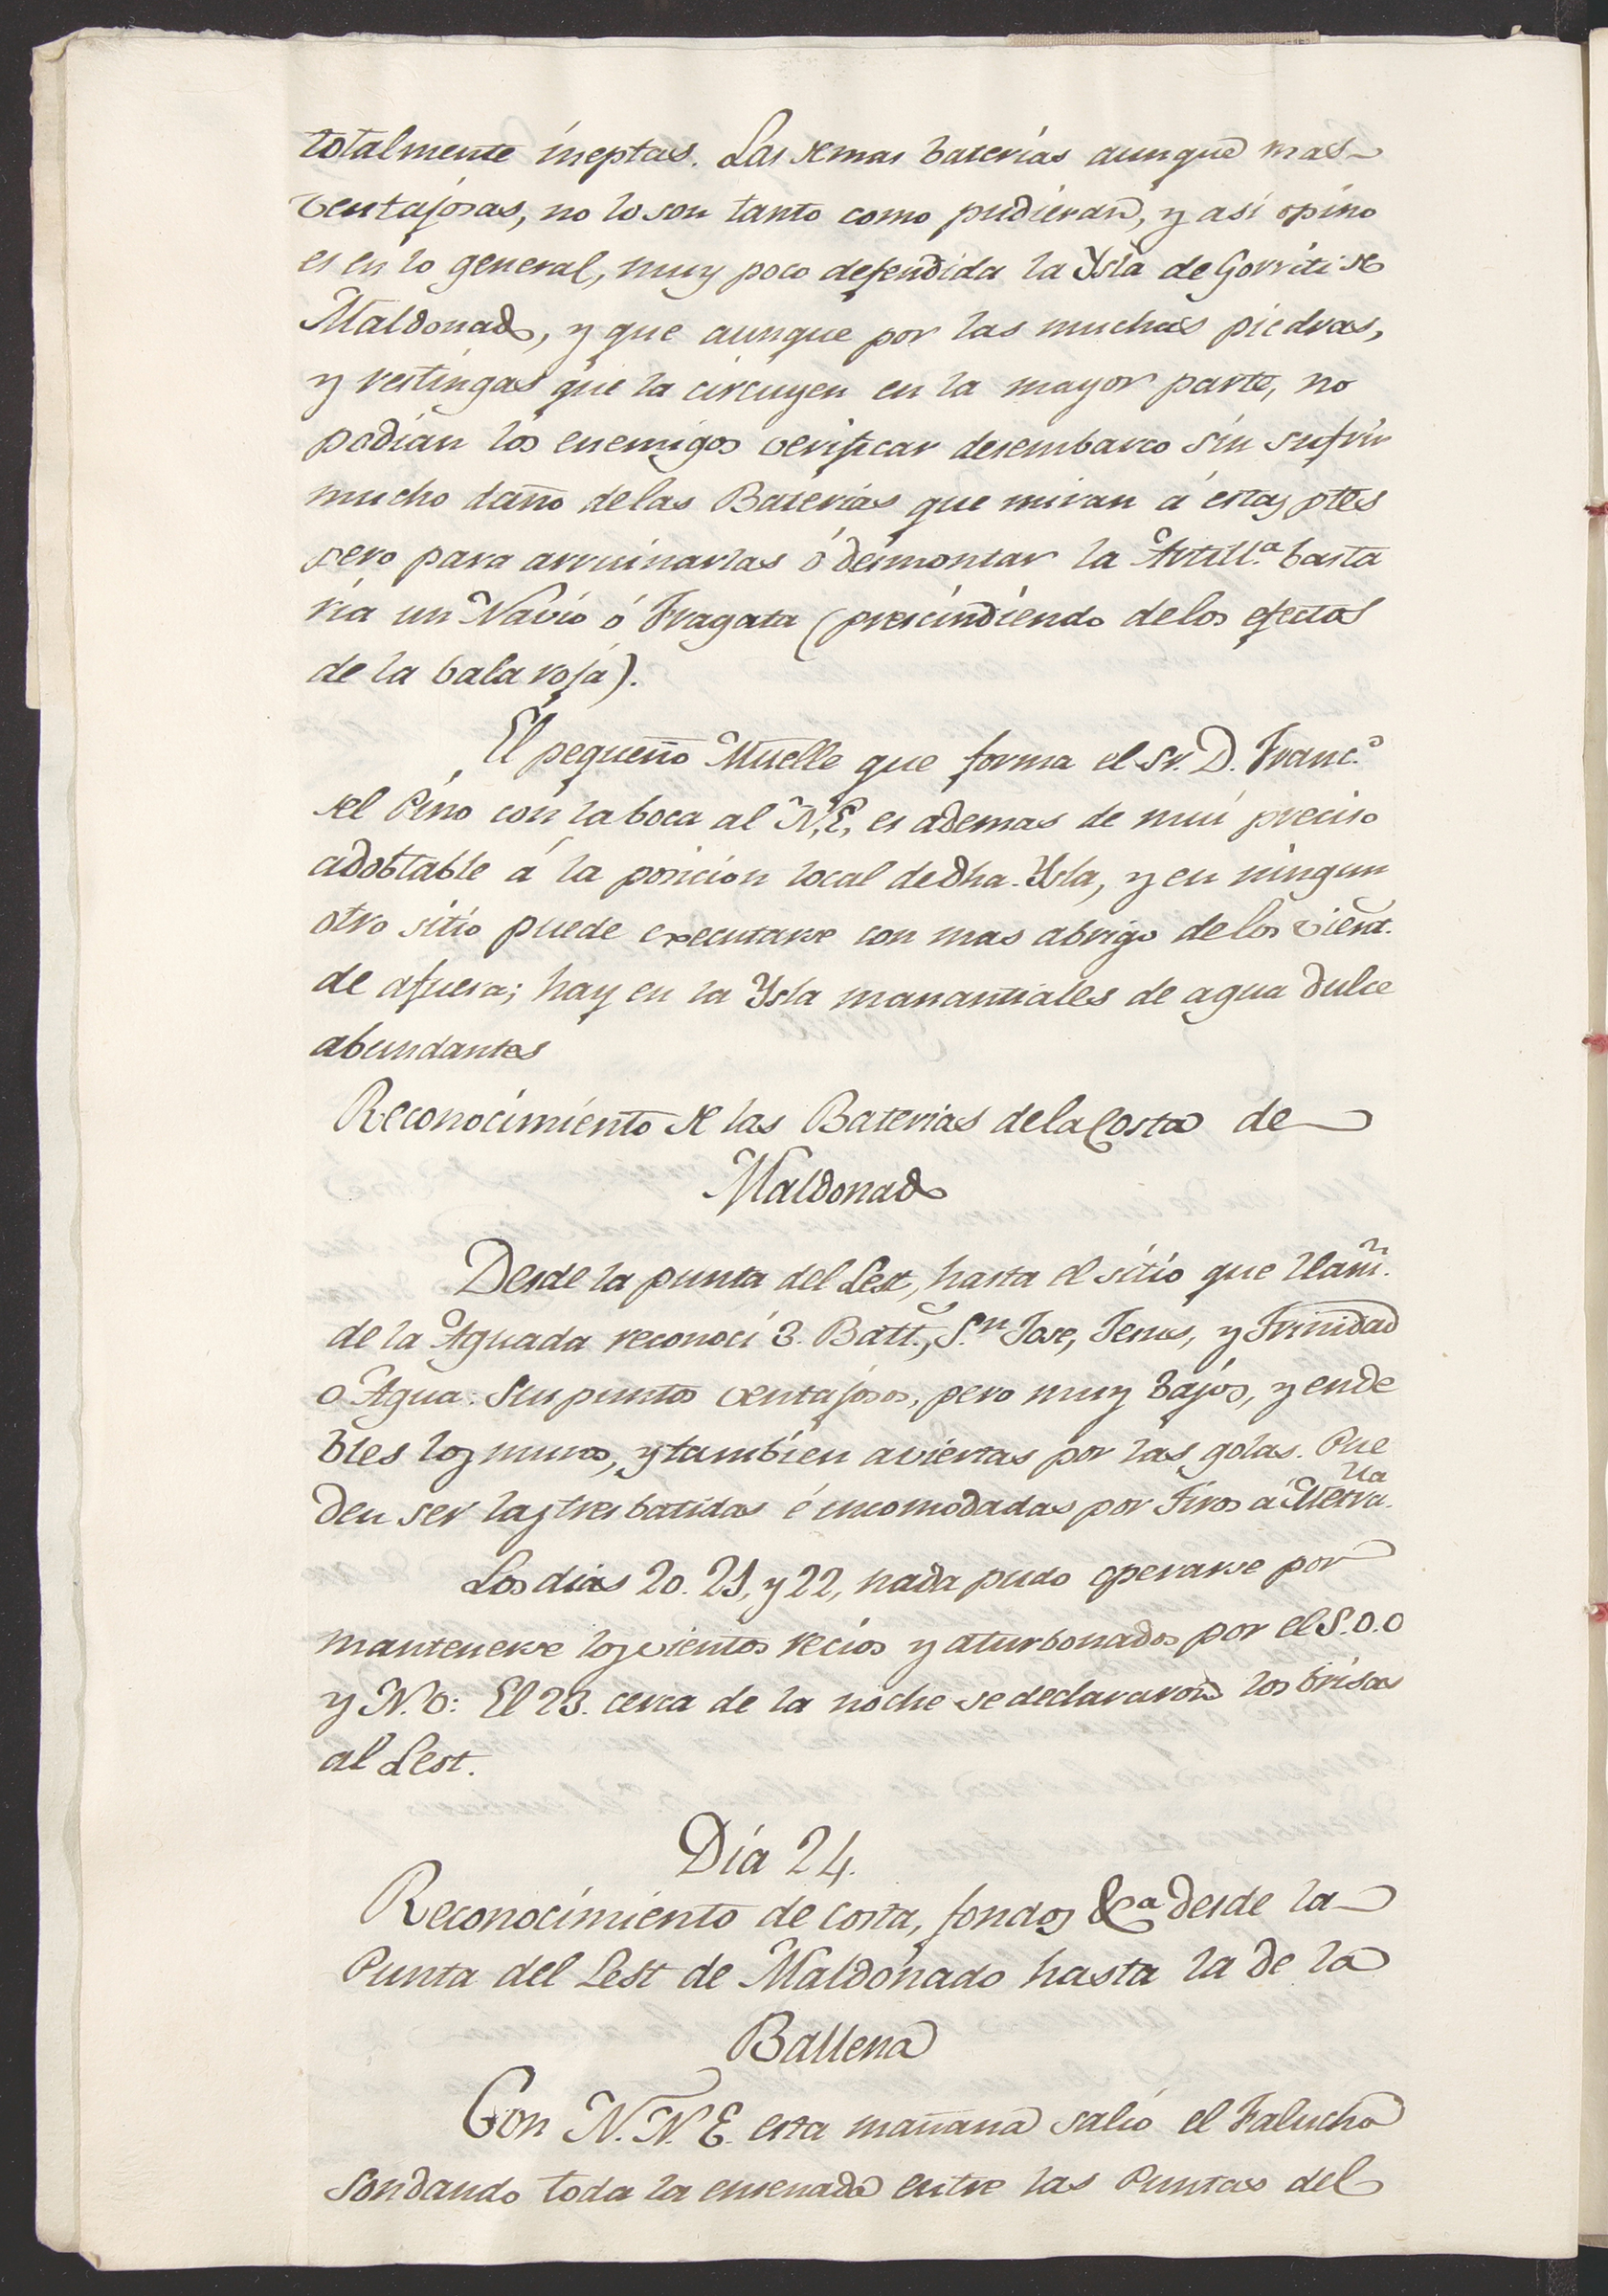 totalmente ineptas. Las demas baterías aunque mas
ventajosas, no lo son tanto como pudieran, y asi opino
es en lo general, muy poco defendida la Ysla de Gorriti de
Maldonado, y que aunque por las muchas piedras,
y restingas que la circuyen en la mayor parte, no
podian los enemigos verificar desembarco sin sufrir
mucho daño de las Baterias que miran á estas ptes
pero para arruinarlas ó desmontar la Artill.ª basta
ria un Navio ó Fragata (prescindiendo de los efectos
de la bala roja).
El pequeño Muelle que forma el Sr. D. Franc.º
del Pino con la boca al N.E, es ademas de mui preciso
adobtable á la posicion local de dha. Ysla, y en ningun
otro sitio puede executarse con mas abrigo de los vient.
de afuera; hay en la Ysla manantiales de agua dulce
abundantes
Reconocimiento de las Baterias de la Costa de
Maldonado
Desde la punta del Lest, hasta el sitio que llam̃.
de la Aguada reconoci 3. Batt.s, S.n Jose, Jesus, y Trinidad
o Agua: Sus puntos ventajosos, pero muy bajos, y ende
bles los muros, y tambien aviertas por las golas. Pue
den ser las tres batidas é incomodadas por Tiros á Metralla.
Los dias 20. 21, y 22, nada pudo operarse por
mantenerse los vientos recios y aturbonados por el S.O.O
y N.O: El 23. cerca de la noche se declararon las brisas
al Lest.
Día 24.
Reconocimiento de costa, fondos &ª desde la
Punta del Lest de Maldonado hasta la de la
Ballena
Con N.N.E. esta mañana salió el Falucho
Sondando toda la ensenada entre las Puntas del